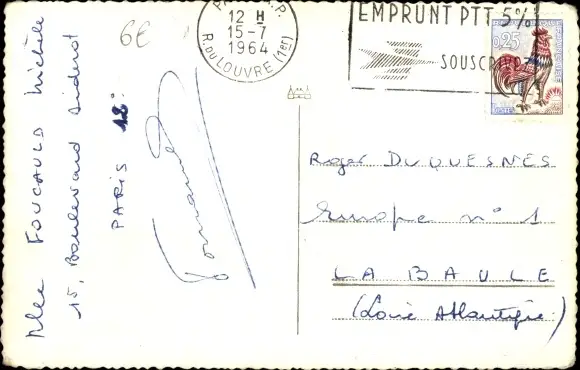 6E
12 H
15-7
1964
R. DU LOUVRE (1er)
EMPRUNT PTT 5%
SOUSCRI
0,25
Mlle FOUCAULD Michèle
15, Boulevard Diderot
PARIS 12°
Roger DUQUESNES
Europe n° 1
LA BAULE
(Loire Atlantique)